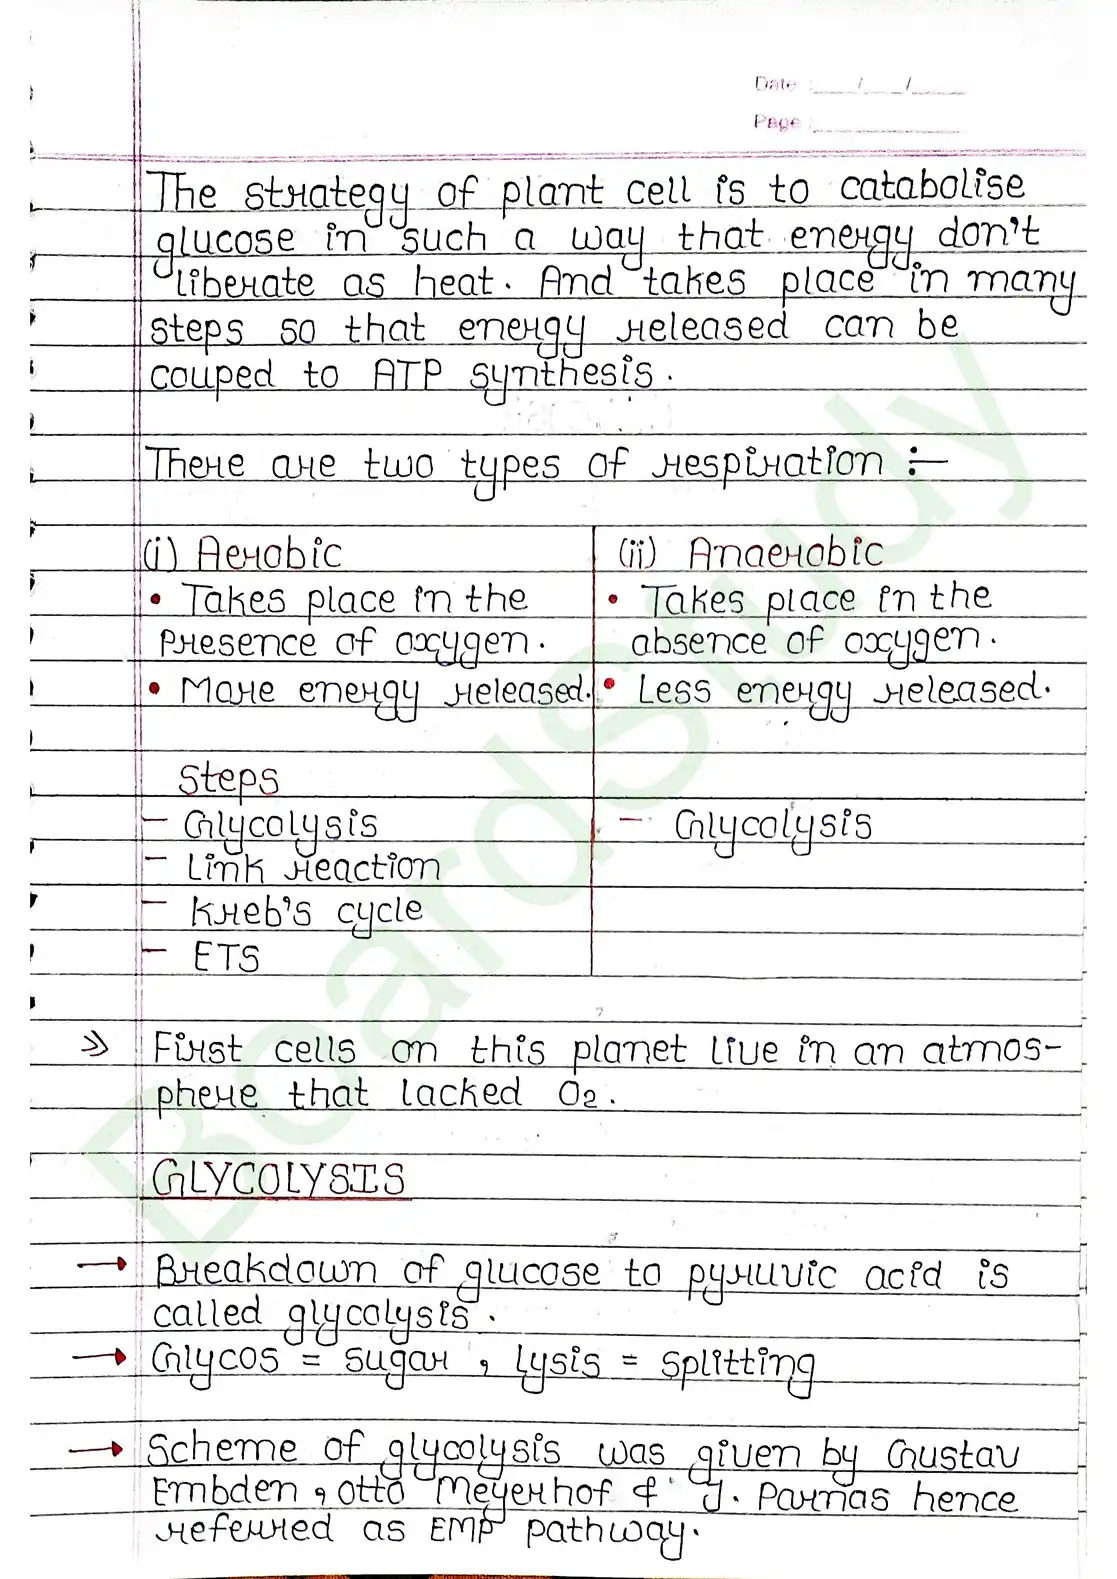 Date :___/___/____
Page :____________
The strategy of plant cell is to catabolise
glucose in such a way that energy don't
liberate as heat. And takes place in many
steps so that energy released can be
couped to ATP synthesis.
There are two types of respiration :-
(i) Aerobic
• Takes place in the
presence of oxygen.
• More energy released.
Steps
- Glycolysis
- Link reaction
- Kreb's cycle
- ETS
(ii) Anaerobic
• Takes place in the
absence of oxygen.
• Less energy released.
- Glycolysis
» First cells on this planet live in an atmos-
phere that lacked O2.
GLYCOLYSIS
→ Breakdown of glucose to pyruvic acid is
called glycolysis.
→ Glycos = sugar, Lysis = splitting
→ Scheme of glycolysis was given by Gustav
Embden, Otto Meyerhof & J. Parnas hence
referred as EMP pathway.
BoardStudy